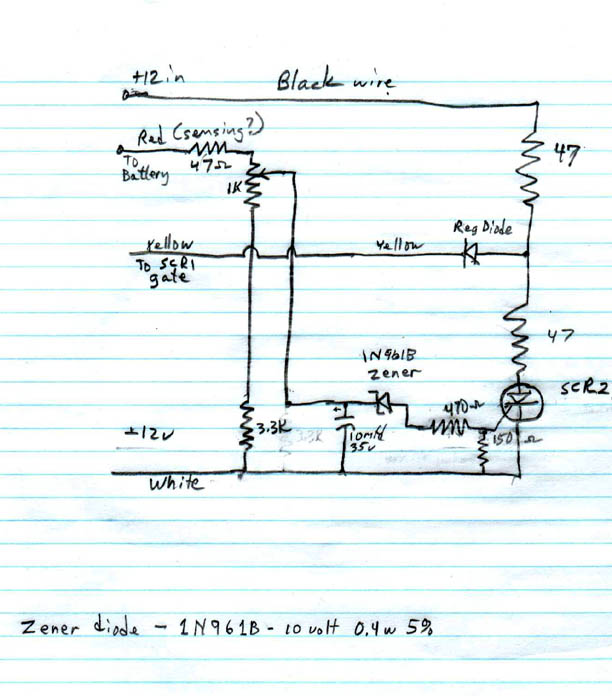 +12 in
Black wire
Red (sensing?)
To
Battery
47Ω
1K
47
Yellow
To SCR1
gate
Yellow
Reg Diode
47
1N961B
Zener
SCR2
470Ω
150Ω
3.3K
3.3K
+
10mfd
35v
±12v
White
Zener diode - 1N961B - 10 volt 0.4w 5%